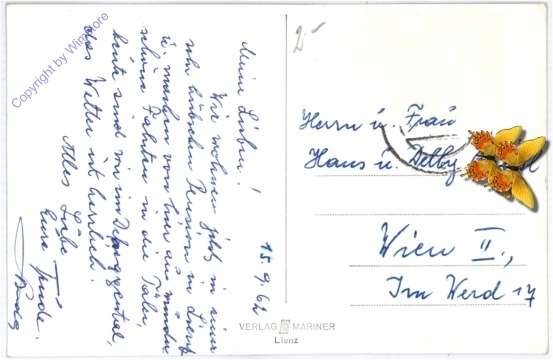 Copyright by Wimstore
2.-
Meine Lieben!
Wir wohnen jetzt in einer
sehr hübschen Pension in Lienz
u. machen von hier aus wunder
schöne Fahrten in die Täler,
heute sind wir im
das Wetter ist herrlich.
Alles Liebe
Eure Trude.
15.9.62
Herrn u. Frau
Hans u. Detty
Wien II.,
Im Werd 17
VERLAG MARINER
Lienz